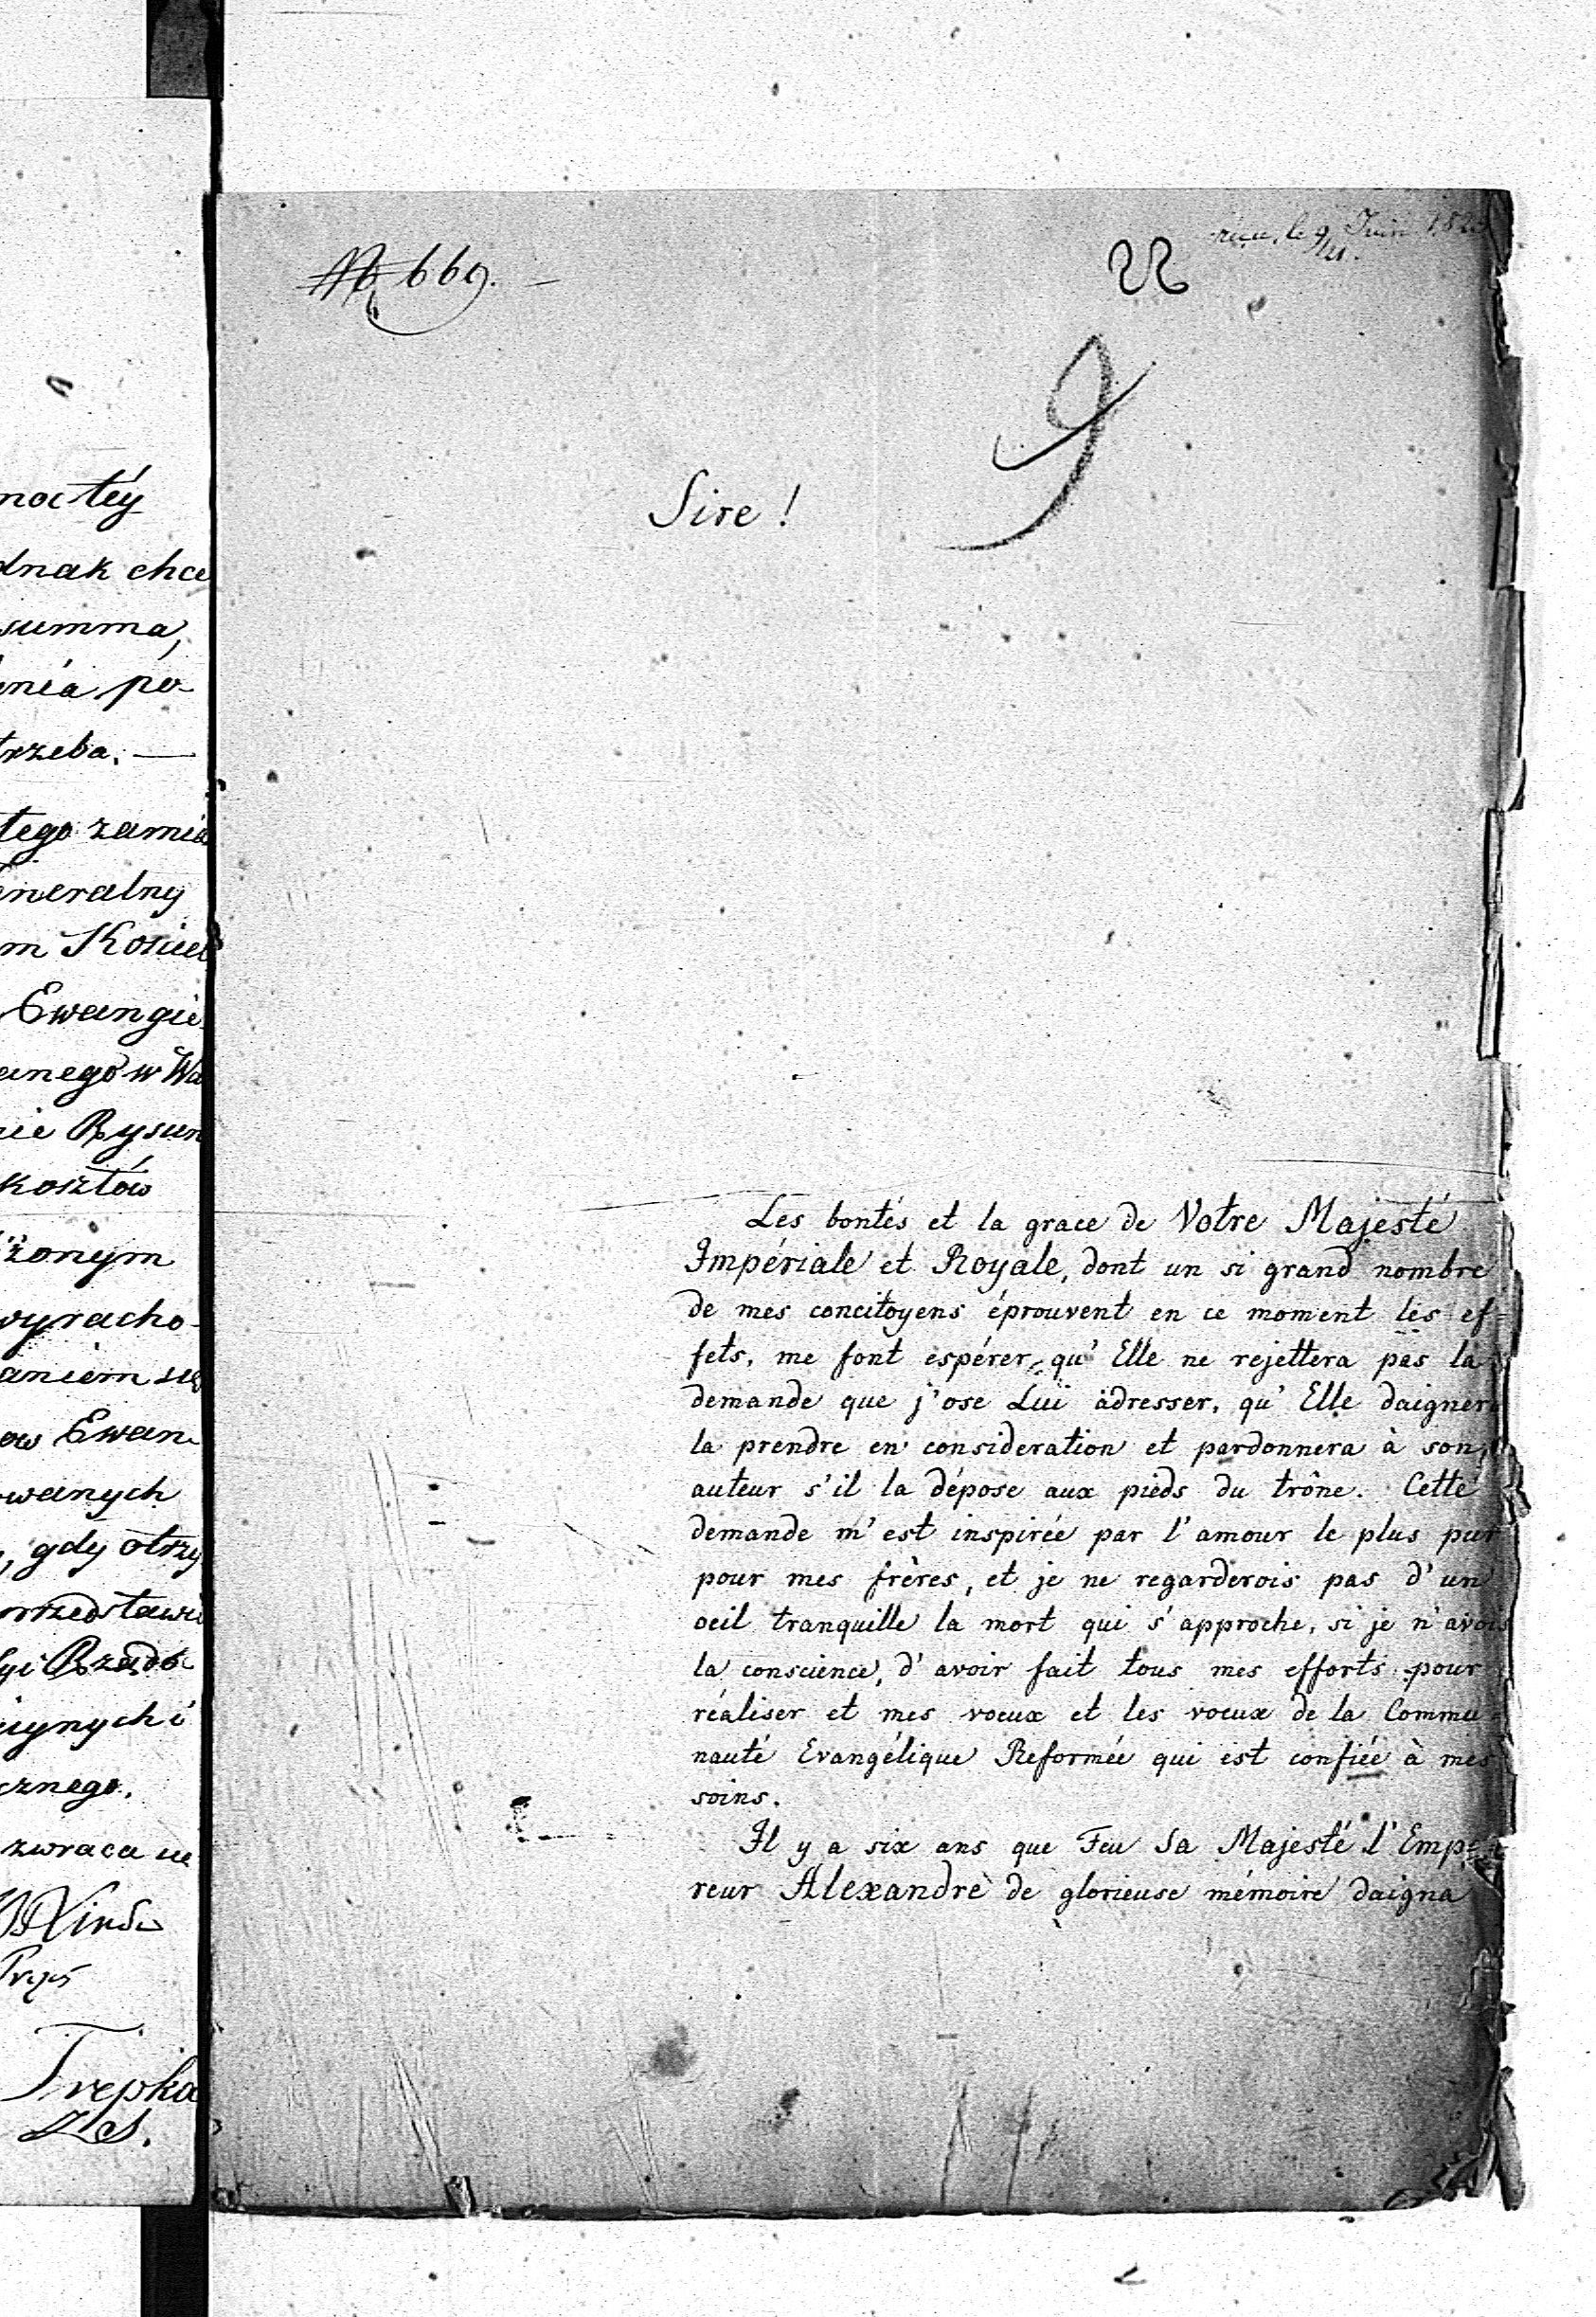 noc téy
dnak chce
summa,
énia po-
trzeba. —
tego zamia
eneralny
m Kościel
Ewangie
anego w Wa
nie Rysun
kosztów
żonym
wyracho-
aniem się
ow Ewan-
wanych
, gdy otrzy
przedstawi
cznego.
zwraca
Trepka
ZS.
No 669. —
22
reçu. le 9/21. Juin 182
9
Sire !
Les bontés et la grace de Votre Majesté
Impériale et Royale, dont un si grand nombre
de mes concitoyens éprouvent en ce moment les ef-
fets, me font espérer, qu' Elle ne rejettera pas la
demande que j'ose Lui adresser, qu' Elle daignera
la prendre en consideration et pardonnera à son
auteur s'il la dépose aux pieds du trône. Cette
demande m'est inspirée par l'amour le plus pur
pour mes frères, et je ne regarderois pas d'un
oeil tranquille la mort qui s'approche, si je n'avois
la conscience, d'avoir fait tous mes efforts pour
réaliser et mes voeux et les voeux de la Commu-
nauté Evangélique Reformée qui est confiée à mes
soins.
Il y a six ans que Feu Sa Majesté l'Empe-
reur Alexandre de glorieuse mémoire daigna